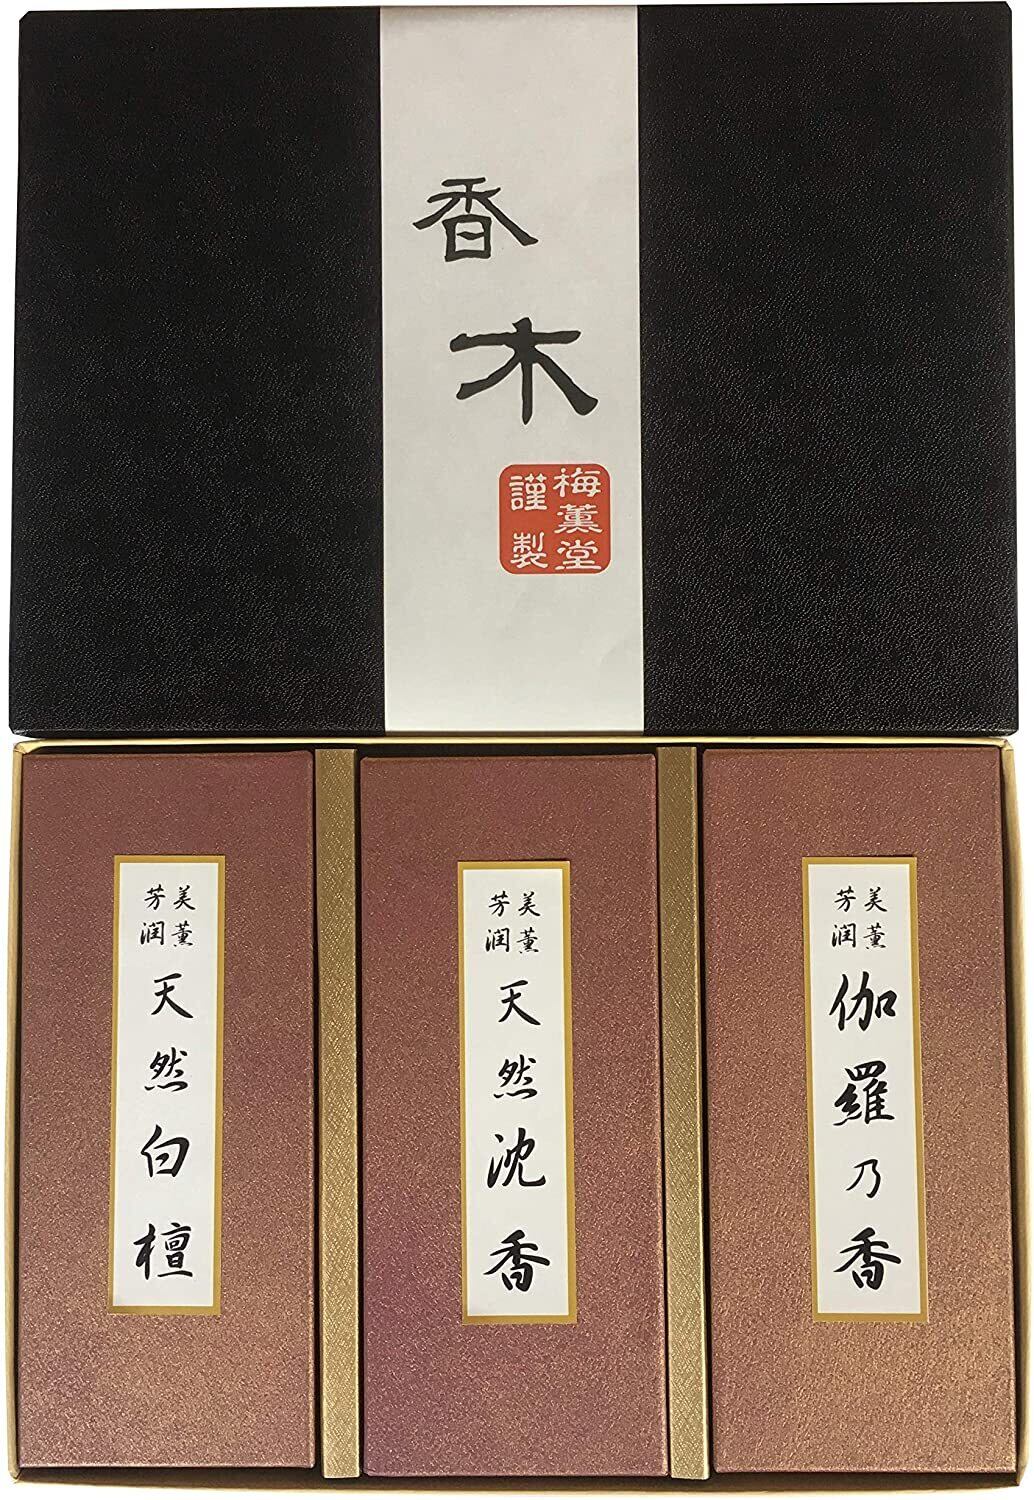 香木
梅薫堂
謹製
美薫
芳潤
天然白檀
美薫
芳潤
天然沈香
美薫
芳潤
伽羅乃香